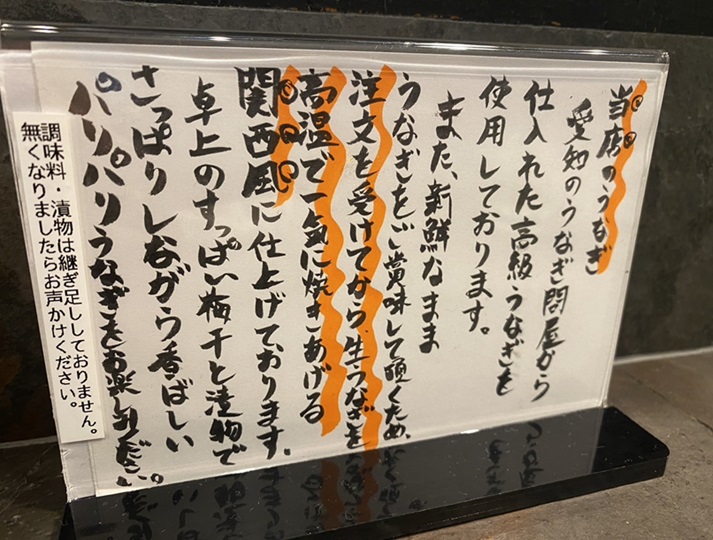 当店のうなぎ
愛知のうなぎ問屋から
仕入れた高級うなぎを
使用しております。
また、新鮮なまま
うなぎをご賞味して頂くため、
注文を受けてから生うなぎを
高温で一気に焼きあげる
関西風に仕上げております。
卓上のすっぱい梅干と漬物で
さっぱりしながら香ばしい
パリパリうなぎをお楽しみください。
調味料・漬物は継ぎ足ししておりません。
無くなりましたらお声かけください。